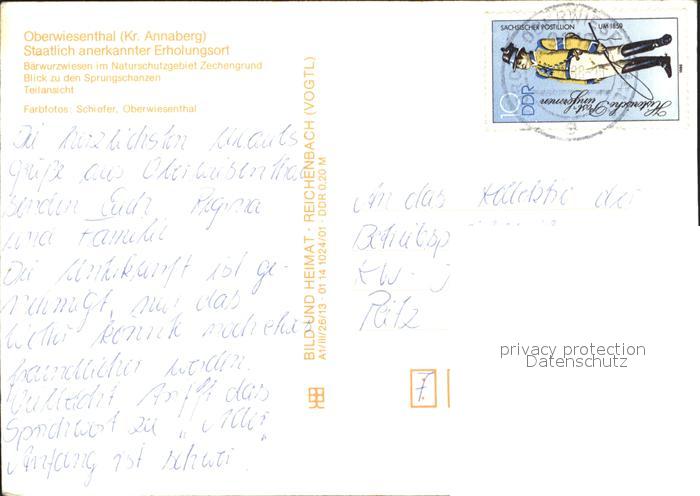 Oberwiesenthal (Kr. Annaberg)
Staatlich anerkannter Erholungsort
Bärwurzwiesen im Naturschutzgebiet Zechengrund
Blick zu den Sprungschanzen
Teilansicht
Farbfotos: Schiefer, Oberwiesenthal
Die herzlichsten Urlaubs
grüße aus Oberwiesentha
senden Euch Regina
und Familie
Die Unterkunft ist ge-
nehmigt, nur das
Wetter könnte noch etwas
freundlicher werden.
Vielleicht trifft das
Sprichwort zu "Aller
Anfang ist schwer".
BILD UND HEIMAT · REICHENBACH (VOGTL)
A1/III/26/13 · 01 14 1024/01 · DDR 0,20 M
SÄCHSISCHER POSTILLION UM 1850
10 DDR
Historische Post-
uniformen
1986
An das der
Betriebsp
KW-
7
privacy protection
Datenschutz